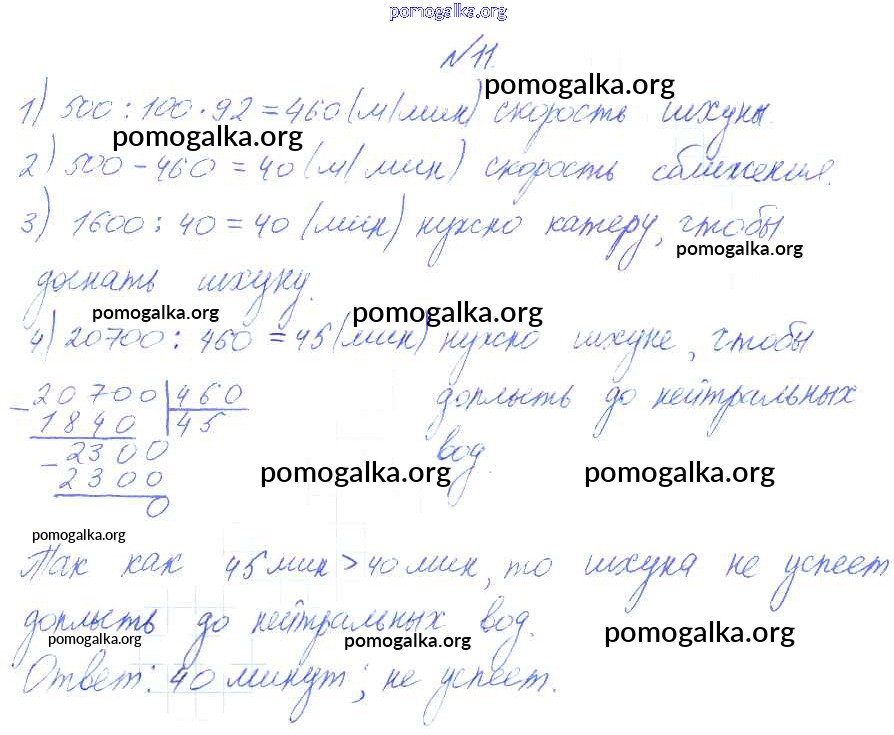 pomogalka.org
№11.
pomogalka.org
1) 500 : 100 · 92 = 460 (м/мин) скорость шхуны.
pomogalka.org
2) 500 - 460 = 40 (м/мин) скорость сближения.
3) 1600 : 40 = 40 (мин) нужно катеру, чтобы
pomogalka.org
догнать шхуну.
pomogalka.org pomogalka.org
4) 20700 : 460 = 45 (мин) нужно шхуне, чтобы
доплыть до нейтральных
вод.
- 20700 | 460
1840 | 45
- 2300
2300
0
pomogalka.org pomogalka.org
pomogalka.org
Так как 45 мин > 40 мин, то шхуна не успеет
доплыть до нейтральных вод.
pomogalka.org pomogalka.org pomogalka.org
Ответ: 40 минут; не успеет.